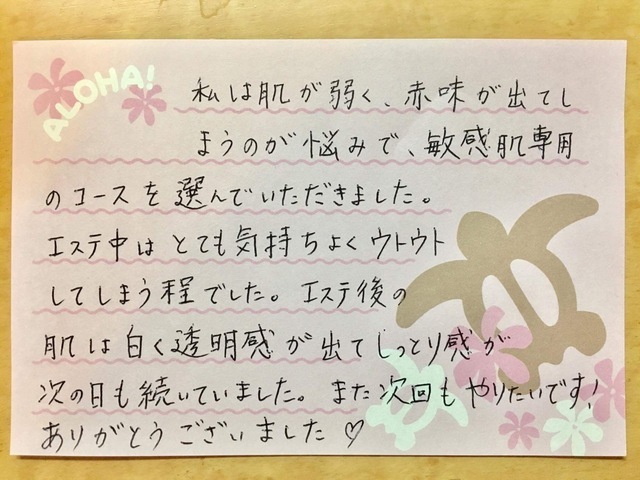 ALOHA!
私は肌が弱く、赤味が出てし
まうのが悩みで、敏感肌専用
のコースを選んでいただきました。
エステ中はとても気持ちよくウトウト
してしまう程でした。エステ後の
肌は白く透明感が出てしっとり感が
次の日も続いていました。また次回もやりたいです!
ありがとうございました♡